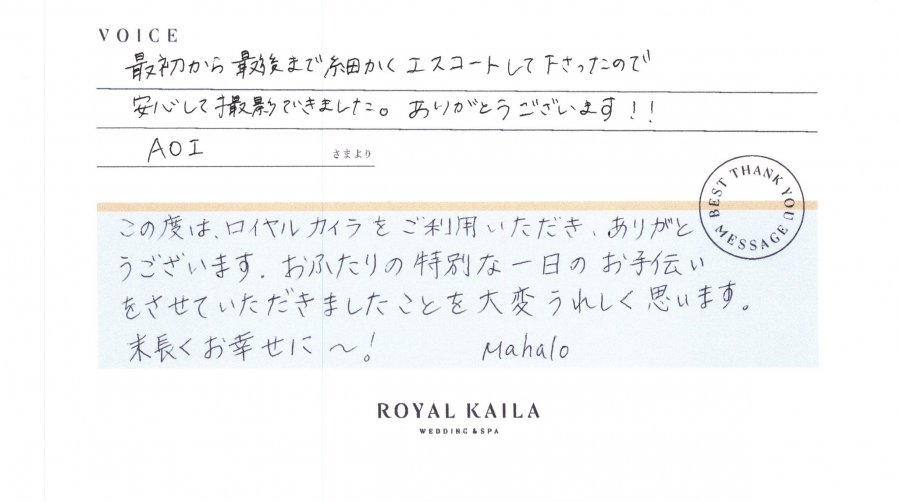 VOICE
最初から最後まで細かくエスコートして下さったので
安心して撮影できました。ありがとうございます!!
AOI さまより
BEST THANK YOU MESSAGE
この度は、ロイヤルカイラをご利用いただき、ありがと
うございます。おふたりの特別な一日のお手伝い
をさせていただきましたことを大変うれしく思います。
末長くお幸せに〜!  Mahalo
ROYAL KAILA
WEDDING & SPA